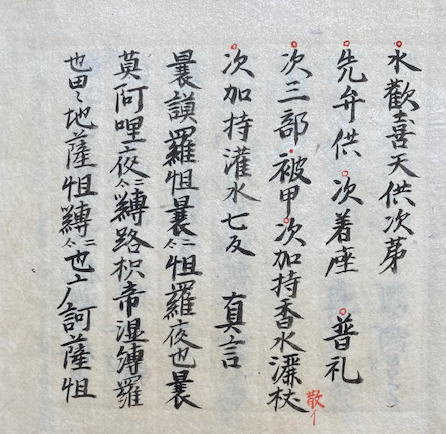 水歡喜天供次苐
先弁供 次着座 普礼
次三部被甲次加持香水灑杖散イ
次加持灌水七反 真言
曩謨羅怛曩二合怛羅夜也曩
莫阿哩夜二合縛路枳帝湿縛羅
也地薩怛縛二合也广訶薩怛